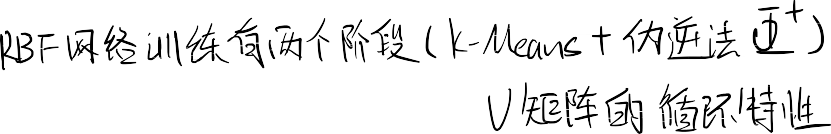 RBF网络训练有两个阶段(k-Means+伪逆法 Φ⁺)
V矩阵的循环特性